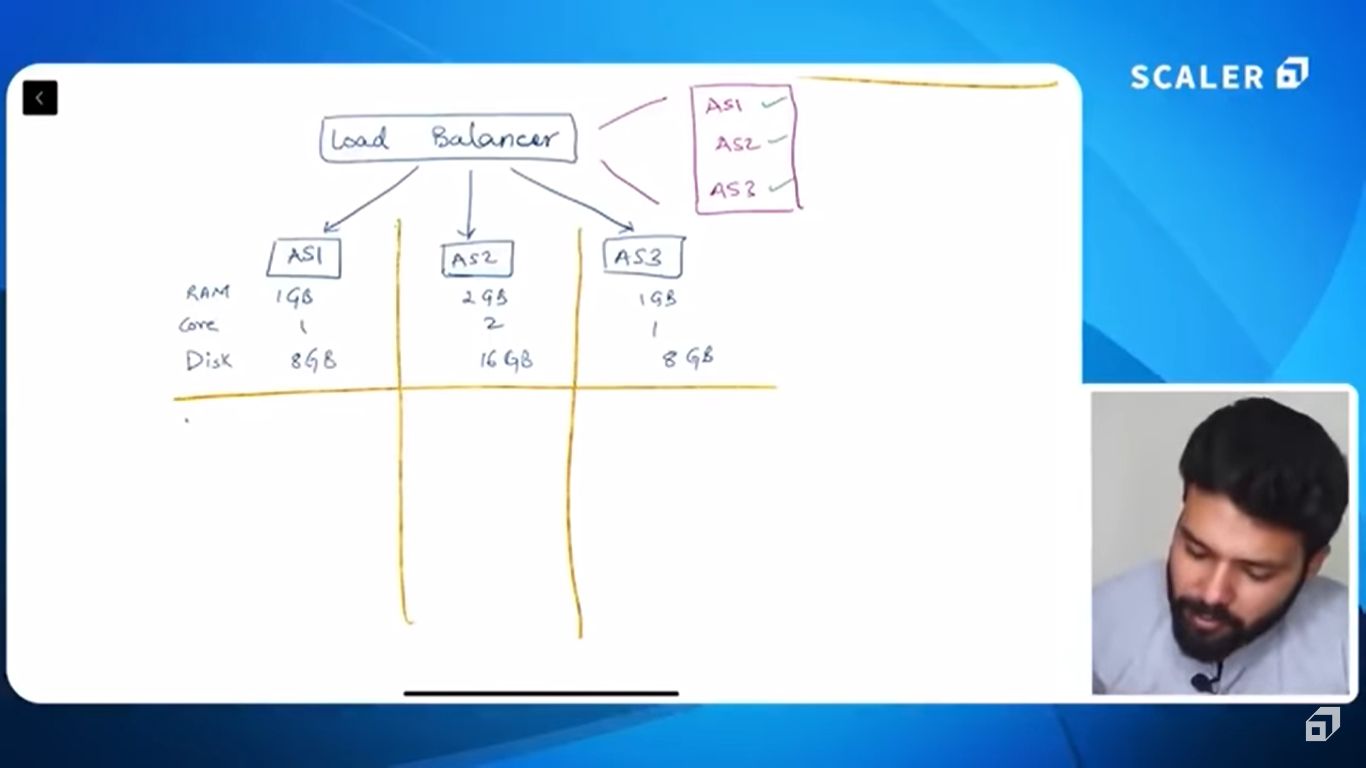 SCALER
Load Balancer
AS1
AS2
AS3
AS1 AS2 AS3
RAM 1GB 2GB 1GB
Core 1 2 1
Disk 8GB 16GB 8GB